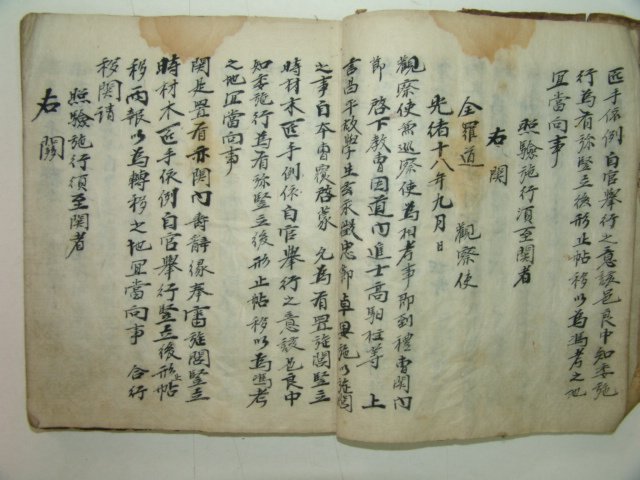 匠手依例自官擧行之意該邑良中知委施
行爲有旀竪立後形止帖移以爲憑考之地
宜當向事
照驗施行須至關者
右關
全羅道 觀察使
光緖十八年九月 日
觀察使兼巡察使爲相考事卽到禮曹關內
節 啓下敎曹因道內進士高 等 上
言昌平故學生 旌閭
之事自本曹覆啓蒙 允爲有置旌閭竪立
時材木匠手依例自官擧行之意該邑良中
知委施行爲有旀竪立後形止帖移以爲憑考
之地宜當向事
關是置有亦關內 辭緣奉審旌閭竪立
時材木匠手依例自官擧行竪立後形止帖
移兩報以爲轉移之地宜當向事 合行
移關請
照驗施行須至關者
右關